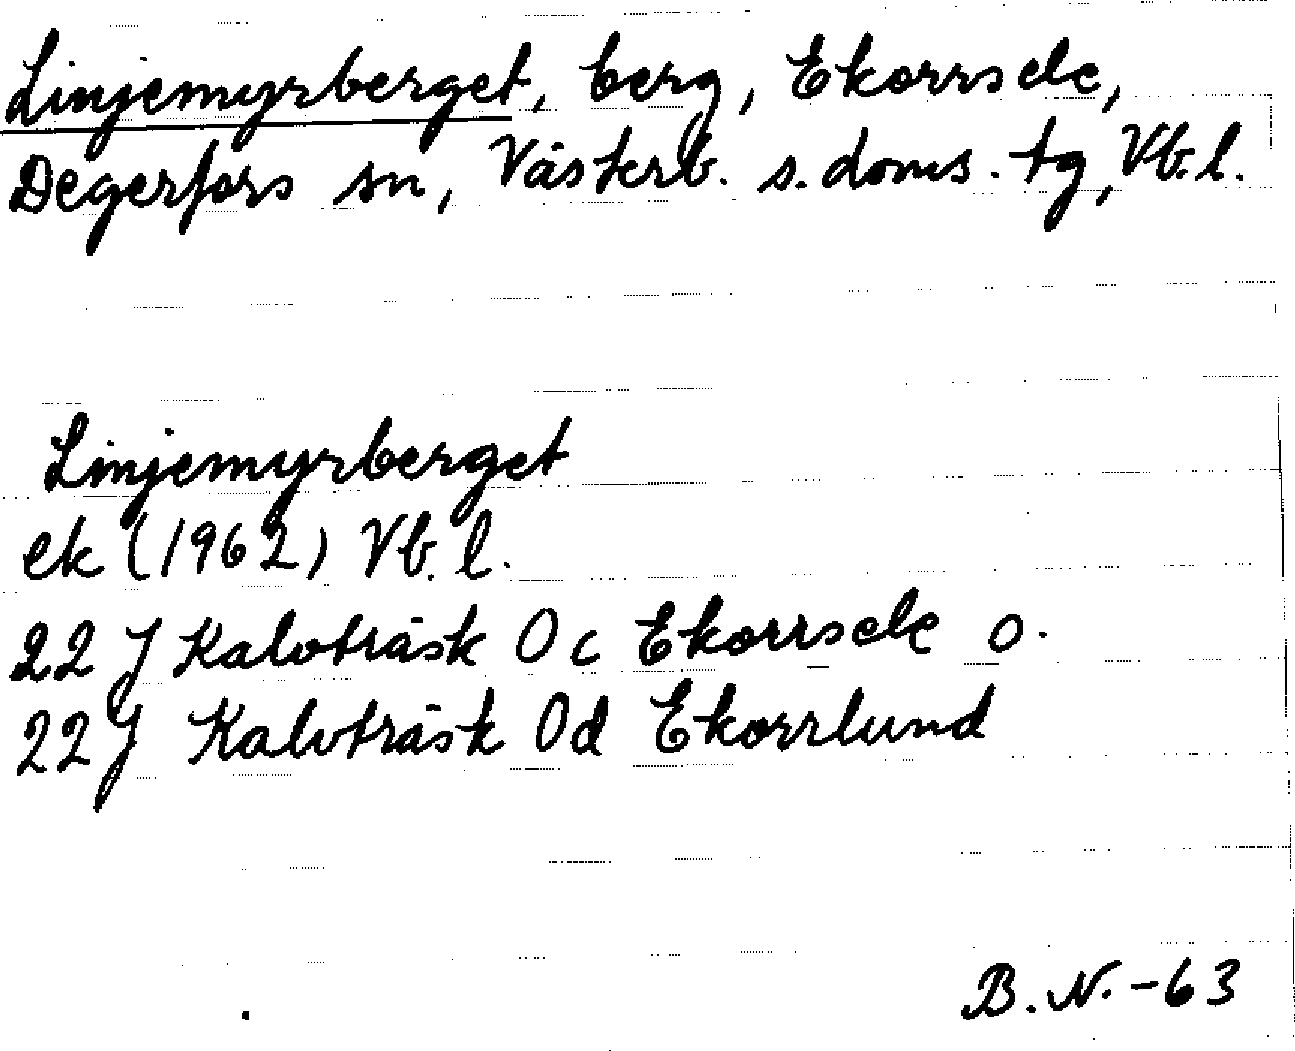 Linjemyrberget, berg, Ekorrsele,
Degerfors sn, Västerb. s. doms. tg, Vb. l.
Linjemyrberget
ek (1962) Vb. l.
22 J Kalvträsk 0 c Ekorrsele o.
22 J Kalvträsk 0d Ekorrlund
B. N. -63